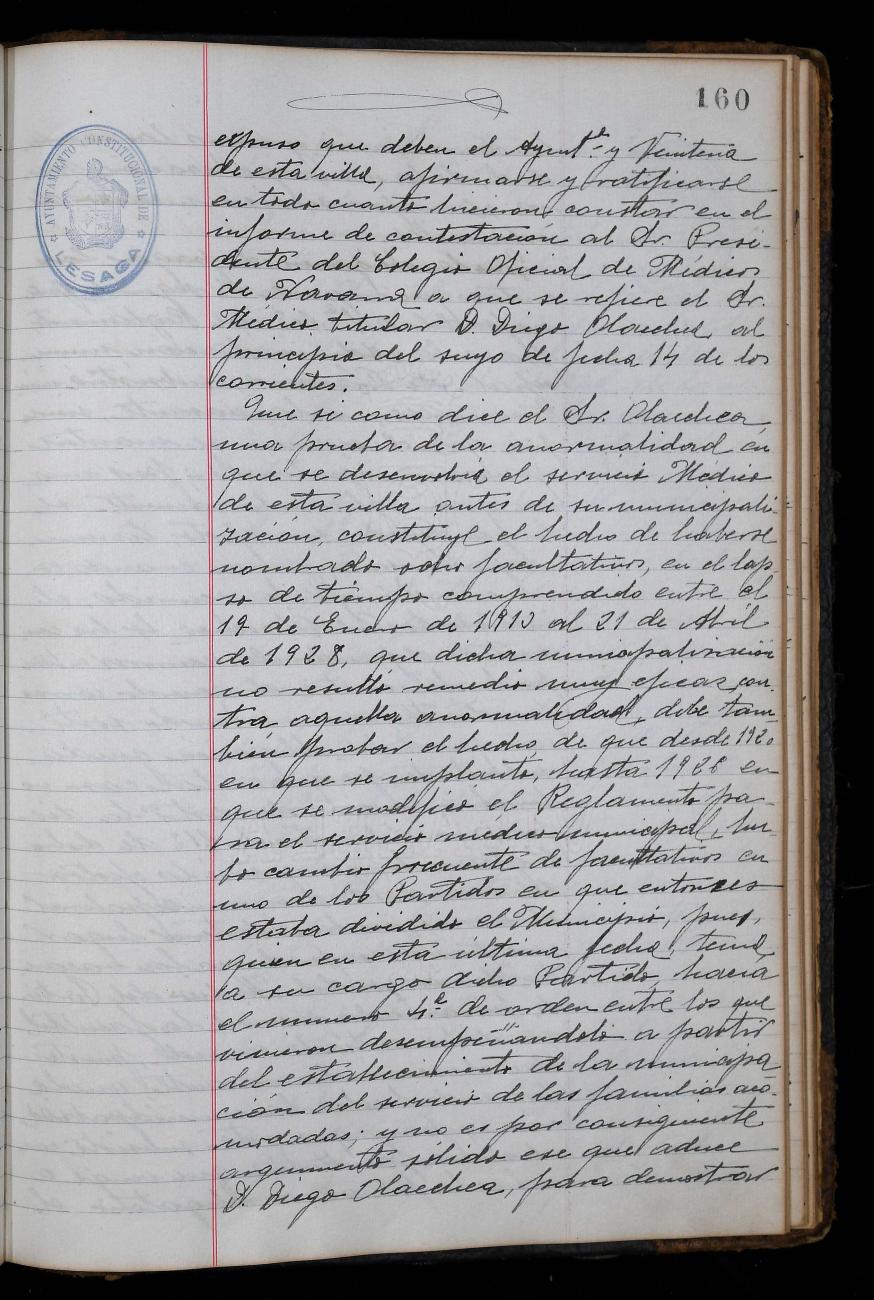 160
AYUNTAMIENTO CONSTITUCIONAL DE
LESACA
expuso que deben el Ayunt.º y Veintena
de esta villa, afirmarse y ratificarse
en todo cuanto hicieron constar en el
informe de contestación al Sr. Presi-
dente del Colegio Oficial de Médicos
de Navarra a que se refiere el Sr.
Médico titular D. Diego Olaechea, al
principio del suyo de fecha 14 de los
corrientes.
Que si como dice el Sr. Olaechea,
una prueba de la anormalidad en
que se desenvolvía el servicio Médico
de esta villa antes de su municipali-
zación, constituye el hecho de haberse
nombrado ocho facultativos, en el lap-
so de tiempo comprendido entre el
19 de Enero de 1913 al 21 de Abril
de 1928, que dicha municipalización
no resultó remedio muy eficaz con-
tra aquella anormalidad, debe tam
bién probar el hecho de que desde 1920
en que se implantó, hasta 1928 en
que se modificó el Reglamento pa-
ra el servicio médico municipal, hu-
bo cambio frecuente de facultativos en
uno de los Partidos en que entonces
estaba dividido el Municipio, pues,
quien en esta última fecha, tenía
a su cargo dicho Partido, hacía
el número 4º de orden entre los que
vinieron desempeñándolo a partir
del establecimiento de la municipa
ción del servicio de las familias aco-
modadas; y no es por consiguiente
argumento sólido ese que aduce
D. Diego Olaechea, para demostrar